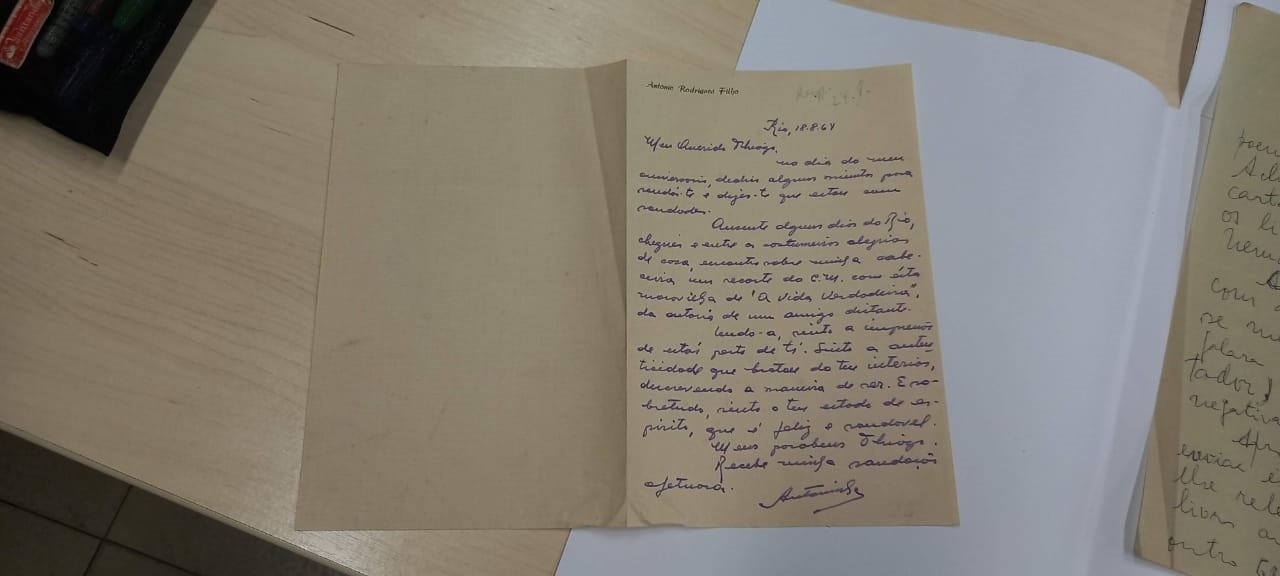 Antonio Rodrigues Filho
24.8.
Rio, 18.8.64
Meu Querido Thiago,
no dia do meu
aniversario, dedico alguns minutos para
saudá-te e dizes-t que estou com
saudades.
Ausente alguns dias do Rio,
cheguei e entre as costumeiras alegrias
de casa, encontro sobre minha cabe-
ceira um recorte do C.M. com ésta
maravilha de "A Vida Verdadeira",
da autoria de um amigo distante.
Lendo-a, sinto a impressão
de estás perto de ti. Sinto a auten-
ticidade que brotou do teu interior,
descrevendo a maneira de ser. E so-
bretudo, sinto o teu estado de es-
pirito, que é feliz e saudavel.
Meus parabens Thiago.
Recebe minha saudação
afetuosa.
poem
cart
os li
com
se me
falara
tador!
negativa
enviar e
lhe rel
livros
outro